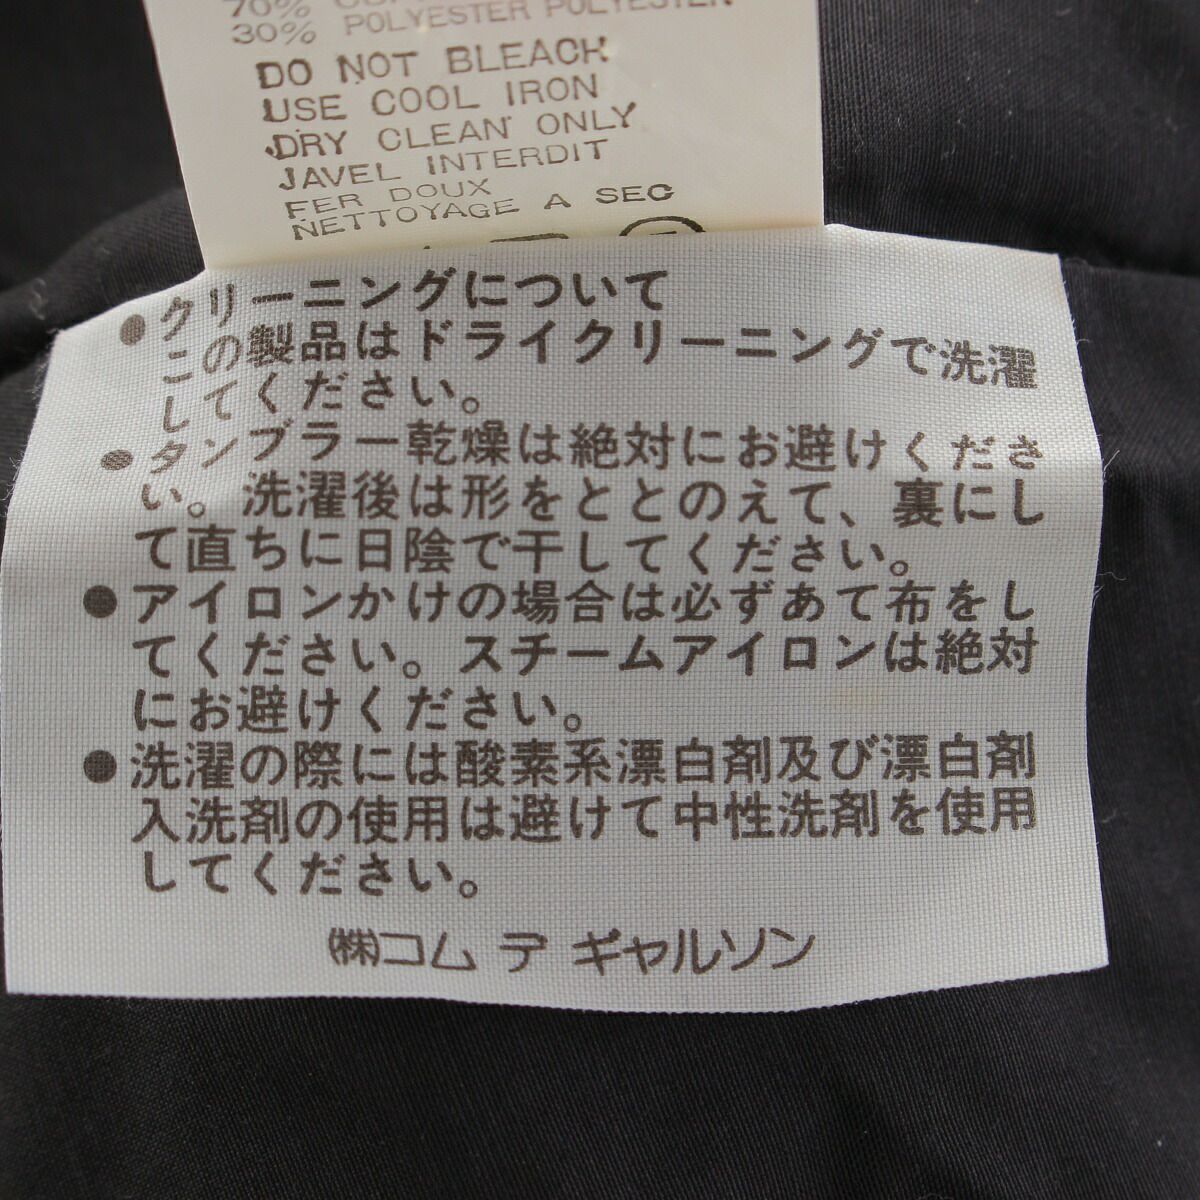 70%
30% POLYESTER POLYESTER
DO NOT BLEACH
USE COOL IRON
DRY CLEAN ONLY
JAVEL INTERDIT
FER DOUX
NETTOYAGE A SEC
●クリーニングについて
この製品はドライクリーニングで洗濯
してください。
●タンブラー乾燥は絶対にお避けくださ
い。洗濯後は形をととのえて、裏にし
て直ちに日陰で干してください。
●アイロンかけの場合は必ずあて布をし
てください。スチームアイロンは絶対
にお避けください。
●洗濯の際には酸素系漂白剤及び漂白剤
入洗剤の使用は避けて中性洗剤を使用
してください。
㈱コム デ ギャルソン